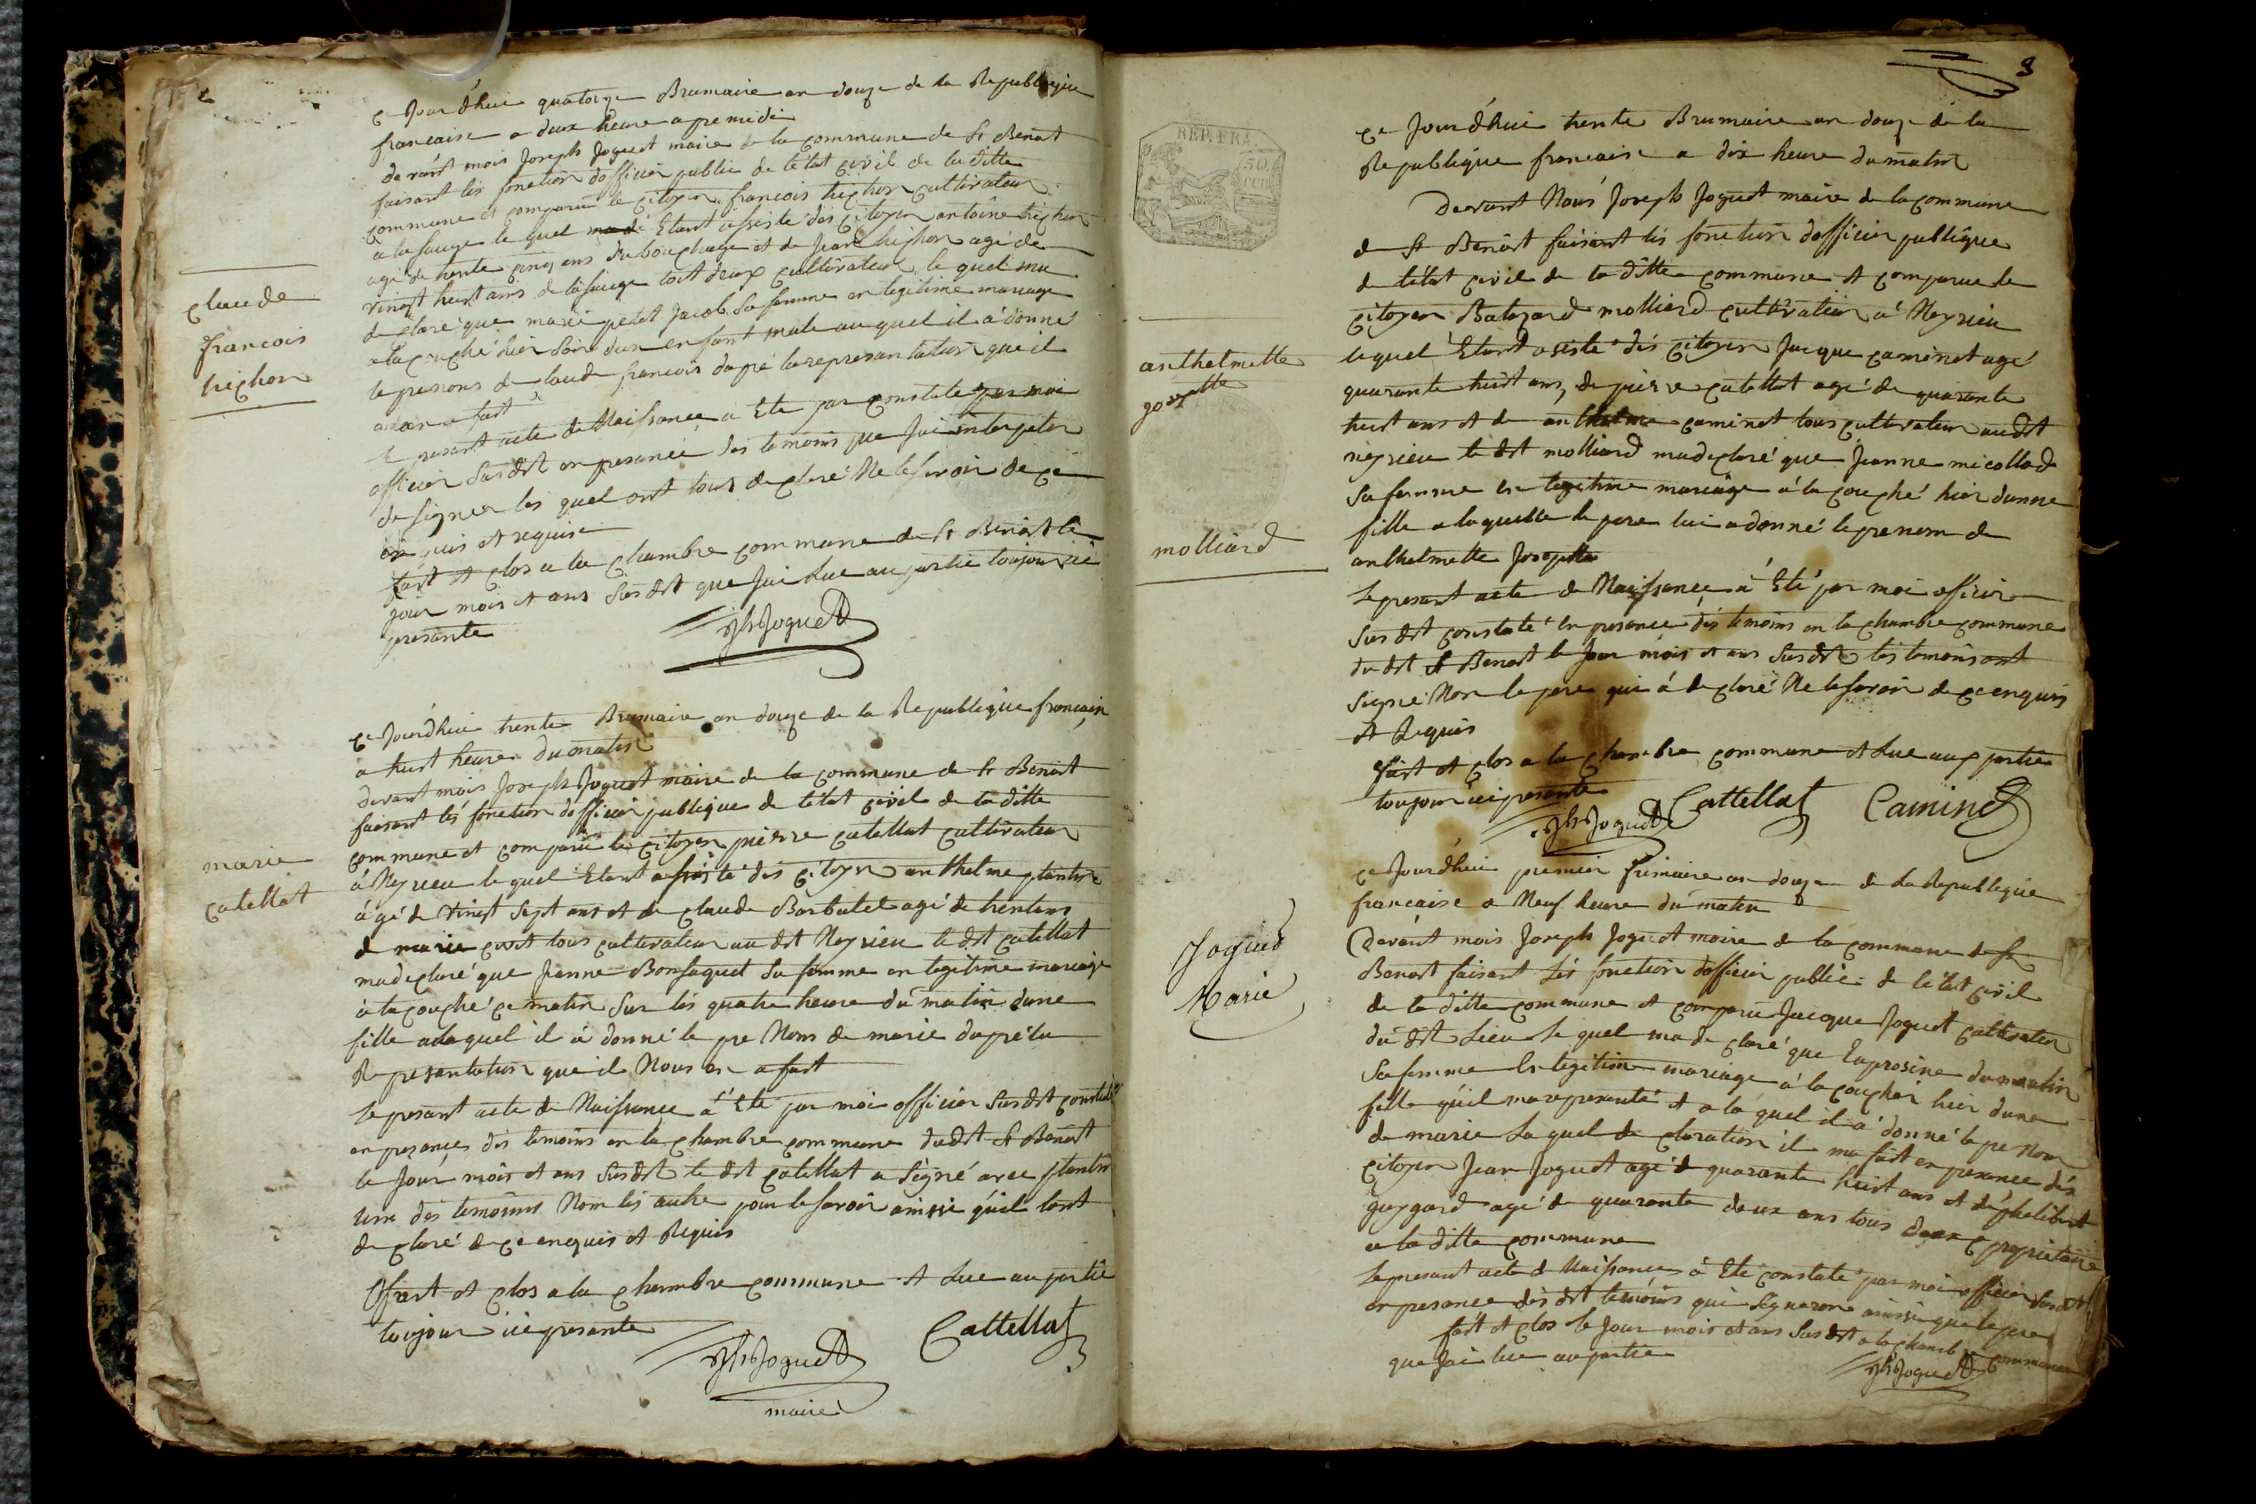 claude
françois
trichon
Ce Jourd'hui quatorze Brumaire an douze de la Republique
francaise a deux heure apremidi
devant mois Joseph Joguet maire de la commune de St Benoit
faisant les fonction dofficier public de letat civil de la ditte
commune et comparu le citoyen françois trichon cultivateur
a la sauge le quel Etant assisté des citoyen antoine trichon
agé de trente cinq ans du bouchage et de Jean trichon agé de
vingt huit ans de la sauge tout deux cultivateur le quel ma
declaré que marie petit Jacob Sa femme en legitime mariage
a la couché hier soir dun enfant male au quel il a donné
le prenoms de claude francois dapré la represantation que il
a fait
le presant acte de Naissance a Eté par constaté par moi
officier Sus dit en presance des temoins que Jai interpeler
de signer les quel ont tous declaré Ne le savoir de ce
enquis et requise
fait et clos a la chambre commune de St Benoit le
jour mois et ans Sus dit que Jai lue au partie toujour ici
presante
Jh Joguet
marie
catellat
Ce Jourd'hui trente Brumaire an douze de la Republique francaise
a huit heure du matin
devant mois Joseph Joguet maire de la commune de St Benoit
faisant les fonction dofficier publique de letat civil de la ditte
commune et comparu le citoyen pierre catellat cultivateur
à Neyrieu le quel Etant assisté des citoyen anthelme plantin
agé de vingt Sept ans et de claude Barbulet agé de trentans
de marie tous cultivateur au dit Neyrieu le dit catellat
ma declaré que Jeanne Bonfaquet Sa femme en legitime mariage
à la couché ce matin Sur les quatre heure du matin dune
fille alaquel il à donné le pre Nom de marie dapré la
Represantation que il Nous en a fait
le presant acte de Naissance a Eté par moi officier Sus dit constaté
en presances des temoins en la chambre commune dudit St Benoit
le Jour mois et ans Susdit le dit catellat a Signé avec plantin
lun des temoins Nom les autre pour le savoir ainsi quil lont
declaré de ce enquis et Requis
fait et clos a la chambre commune et Lue au partie
toujour ici presante
Jh Joguet
Cattellat
maire
3
REP. FRA.
50
anthelmette
gozette
molliard
Ce Jourd'hui trente Brumaire an douze de la
Republique francaise a dix heure du matin
Devant Nous Joseph Joguet maire de la commune
de St Benoit faisant les fonction dofficier publique
de letat civil de la ditte commune et comparue le
citoyen Batazard molliard cultivateur à Neyrieu
lequel Etant asisté des citoyen Jacque caminet agé
quarante huit ans, de pierre catellat agé de quarante
huit ans et de anthelme caminet tous cultivateur audit
neyrieu le dit molliard ma declaré que Jeanne micollad
Sa femme en legitime mariage à la couché hier dunne
fille a laquelle le pere lui a donné le prenom de
anthelmette Josephte
Le presant acte de Naissance a Eté par moi officier
Sus dit constaté en presance des temoins en la chambre commune
du dit St Benoit le Jour mois et ans Susdit les temoins ont
Signé Non le pere qui à declaré Ne le savoir de ce enquis
et Requis
fait et clos a la chambre commune et Lue aux partie
toujour ici presante
Jh Joguet Cattellat Caminet
Joguet
Marie
Ce Jourd'hui premier frimaire an douze de La Republique
francaise a Neuf heure du matin
Devant mois Joseph Joguet maire de la commune de St
Benoit faisant Les fonction dofficier public de letat civil
de la ditte commune et comparu Jacque Joguet cultivateur
du dit Lieu Le quel ma declaré que Euprosine dumoulin
Sa femme En legitime mariage à la coucher hier dune
fille quil ma represanté et a la quel il a donné le pre Nom
de marie La quel declaration il ma fait en presance des
citoyen Jean Joguet agé de quarante huit ans et de phelibert
guygard agé de quarante deux ans tous deux propriétaire
a la ditte commune
Le presant acte de Naissance à Eté constaté par moi officier Sus dit
en presance des dit temoins qui Signeron ainsi que le pere
fait et clos le Jour mois et ans Sus dit a la chambre commune
que Jai lue au partie
Jh Joguet